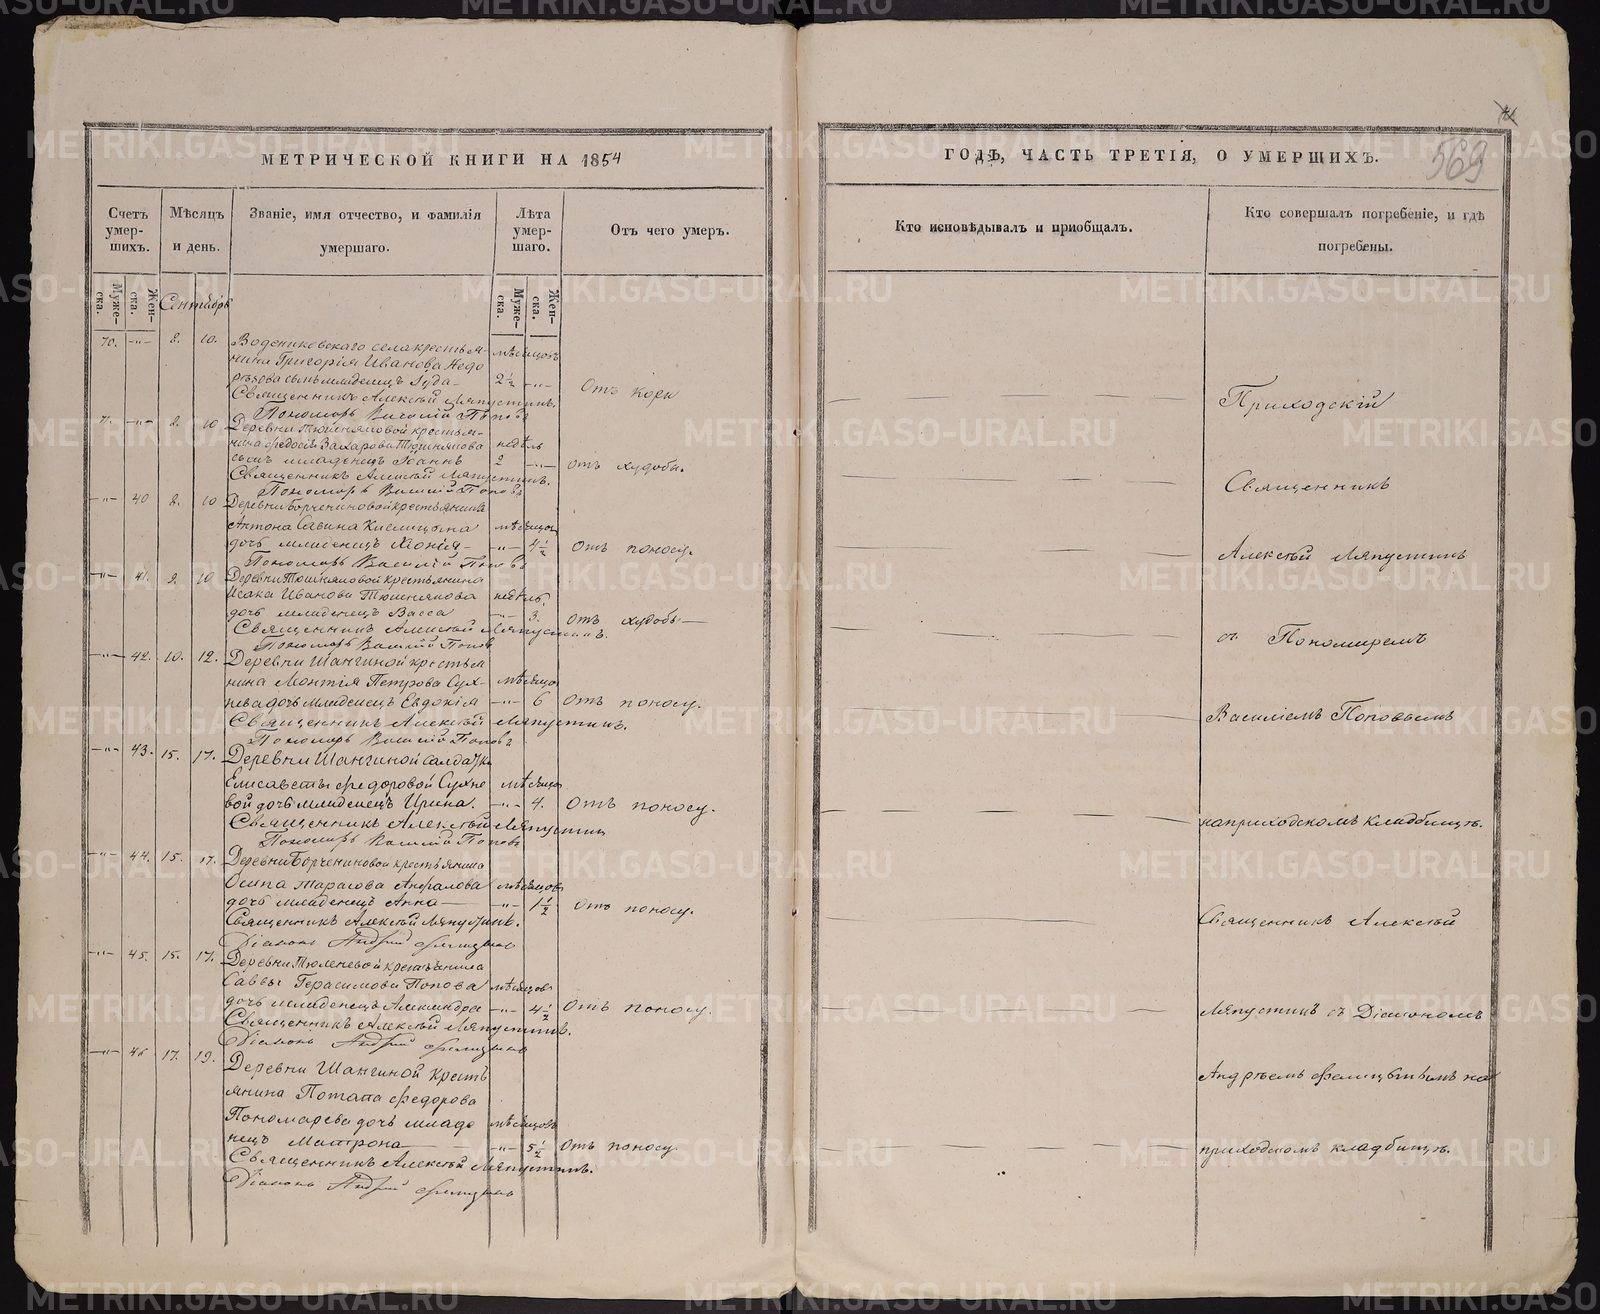 МЕТРИЧЕСКОЙ КНИГИ НА 1854
ГОДѢ, ЧАСТЬ ТРЕТІЯ, О УМЕРШИХЪ.
569
Счетъ умер-шихъ.
Мѣсяцъ и день.
Званіе, имя отчество, и фамилія умершаго.
Лѣта умер-шаго.
Отъ чего умеръ.
Кто исповѣдывалъ и приобщалъ.
Кто совершалъ погребеніе, и гдѣ погребены.
Муже-ска.
Жен-ска.
Сентябрь
Муже-ска.
Жен-ска.
70. —"— 8. 10. Водениковскаго села крестья-
нина Григорія Иванова Недо
рѣзова сынъ младенецъ Іуда
мѣсяцовъ
2½ —"—
Отъ кори
Священникъ Алексѣй Ляпустинъ.
Пономарь Василій Поповъ
71. —"— 8. 10 Деревни Тюшняковой крестья-
нина Федосія Захарова Тюшнякова
сынъ младенецъ Іоаннъ
недѣль
2 —"—
отъ худобы.
Священникъ Алексѣй Ляпустинъ.
Пономарь Василій Поповъ
—"— 40 8. 10 Деревни Борчениновой крестьянина
Антона Савина Кислицына
дочь младенецъ Хіонія
мѣсяцов
—"— 4½
Отъ поносу.
Пономарь Василій Поповъ
—"— 41. 8. 10 Деревни Тюшняковой крестьянина
Исака Иванова Тюшнякова
дочь младенецъ Васса
недѣль.
—"— 3.
Отъ худобы
Священникъ Алексѣй Ляпустинъ.
Пономарь Василій Поповъ
—"— 42. 10. 12. Деревни Шангиной крестья
нина Монтія Петрова Сух-
нева дочь младенецъ Евдокія
мѣсяцов
—"— 6
Отъ поносу.
Священникъ Алексѣй Ляпустинъ.
Пономарь Василій Поповъ
—"— 43. 15. 17. Деревни Шангиной солдатки
Елисаветы Федоровой Сухне
вой дочь младенецъ Ирина.
мѣсяцов
—"— 4.
Отъ поносу.
Священникъ Алексѣй Ляпустин
Пономарь Василій Поповъ
—"— 44. 15. 17. Деревни Борчениновой крестьянина
Осипа Тарасова Анфалова
дочь младенецъ Анна
мѣсяцов
—"— 1½
Отъ поносу.
Священникъ Алексѣй Ляпустинъ.
Діаконъ Андрей Фелицынъ
—"— 45. 15. 17. Деревни Тюленевой крестьянина
Саввы Герасимова Попова
дочь младенецъ Александра
мѣсяцов
—"— 4½
Отъ поносу.
Священникъ Алексѣй Ляпустинъ.
Діаконъ Андрей Фелицынъ
—"— 46 17. 19. Деревни Шангиной кресть
янина Потапа Федорова
Пономарева дочь младе
нецъ Матрона
мѣсяцовъ
—"— 5½
Отъ поносу.
Священникъ Алексѣй Ляпустинъ.
Діаконъ Андрей Фелицынъ
Приходскій
Священникъ
Алексѣй Ляпустинъ
съ Пономаремъ
Василіемъ Поповымъ
на приходскомъ кладбищѣ.
Священникъ Алексѣй
Ляпустинъ съ Діакономъ
Андрѣемъ Фелицынымъ на
приходскомъ кладбищѣ.
METRIKI.GASO-URAL.RU